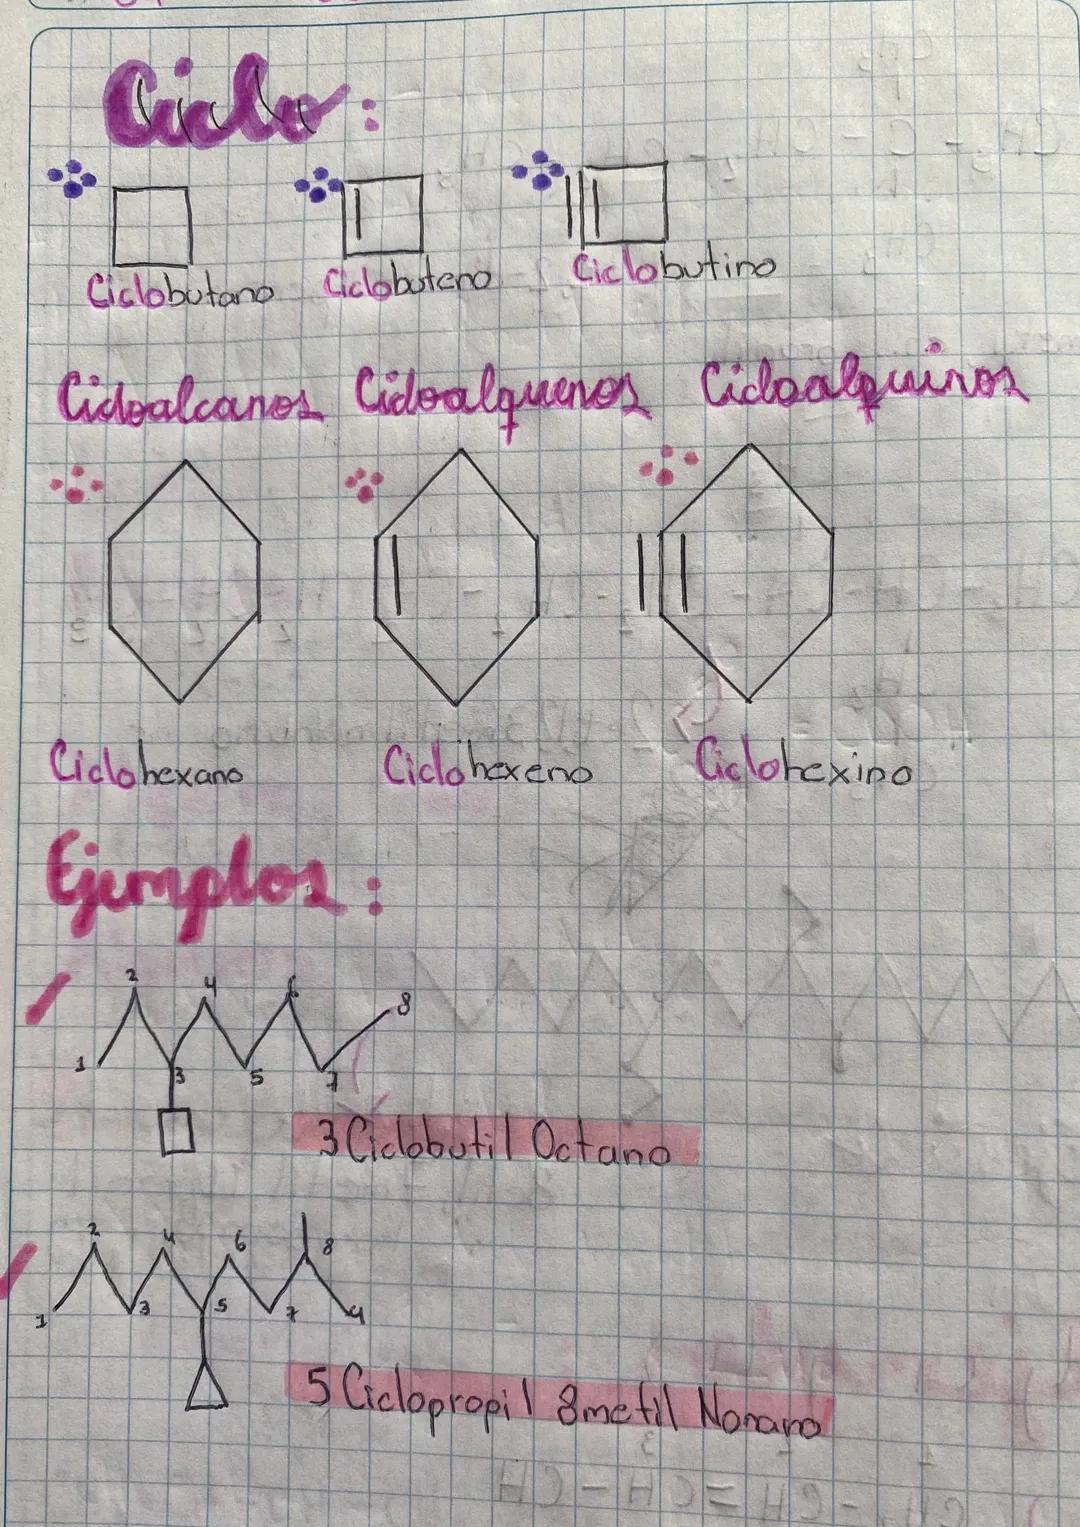 Ciclo:
Ciclobutano Ciclobuteno Ciclobutino
Cicloalcanos Cicloalquenos Cicloalquinos
Ciclohexano Ciclohexeno Ciclohexino
Ejemplos:
2 4 6 8
1 3 5 7
3 Ciclobutil Octano
2 4 6 8
1 3 5 7 9
5 Ciclopropil 8metil Nonano